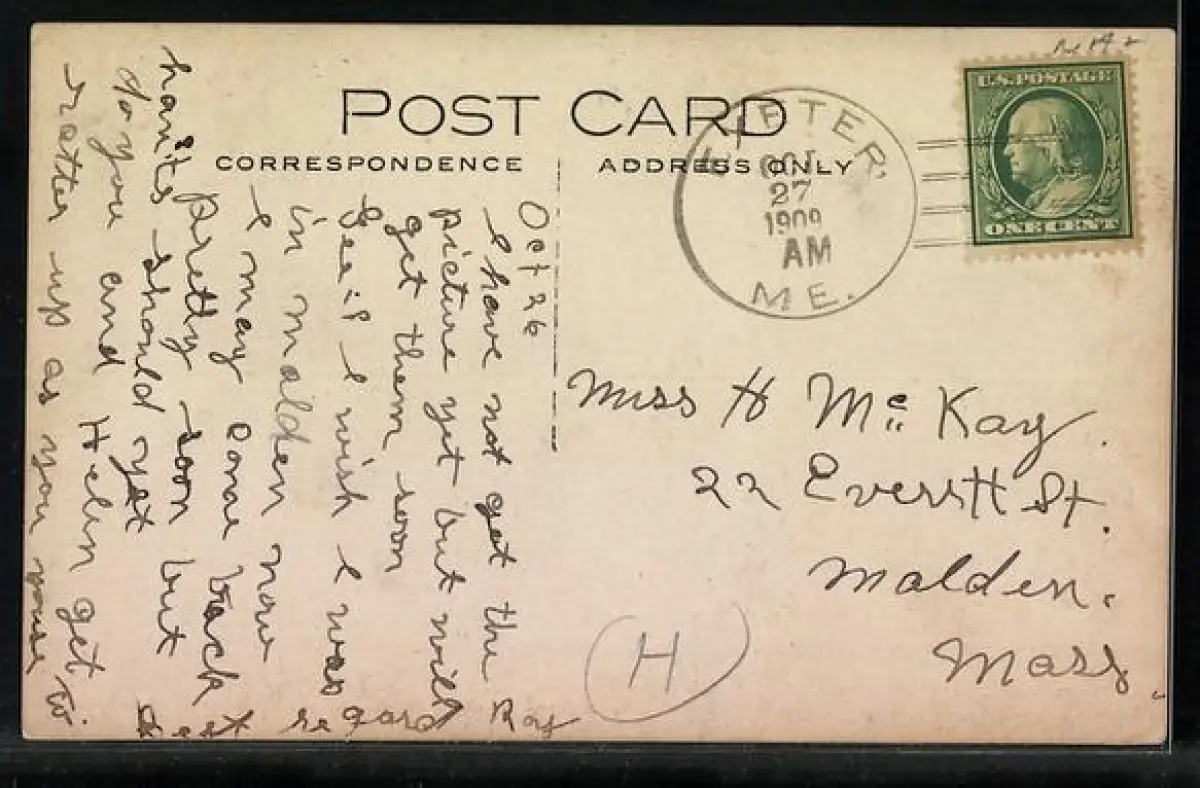 POST CARD
CORRESPONDENCE
ADDRESS ONLY
U.S. POSTAGE
ONE CENT
OCT
27
1909
AM
ME.
Oct 26
I have not get the
picture yet but will
get them soon
Gee if I wish I was
in malden now
I may come back
pretty soon but
han't should yet
do you and Helen get to
rather up as you
regard Ray
Miss H McKay.
22 Everett St.
Malden.
Mass.
H